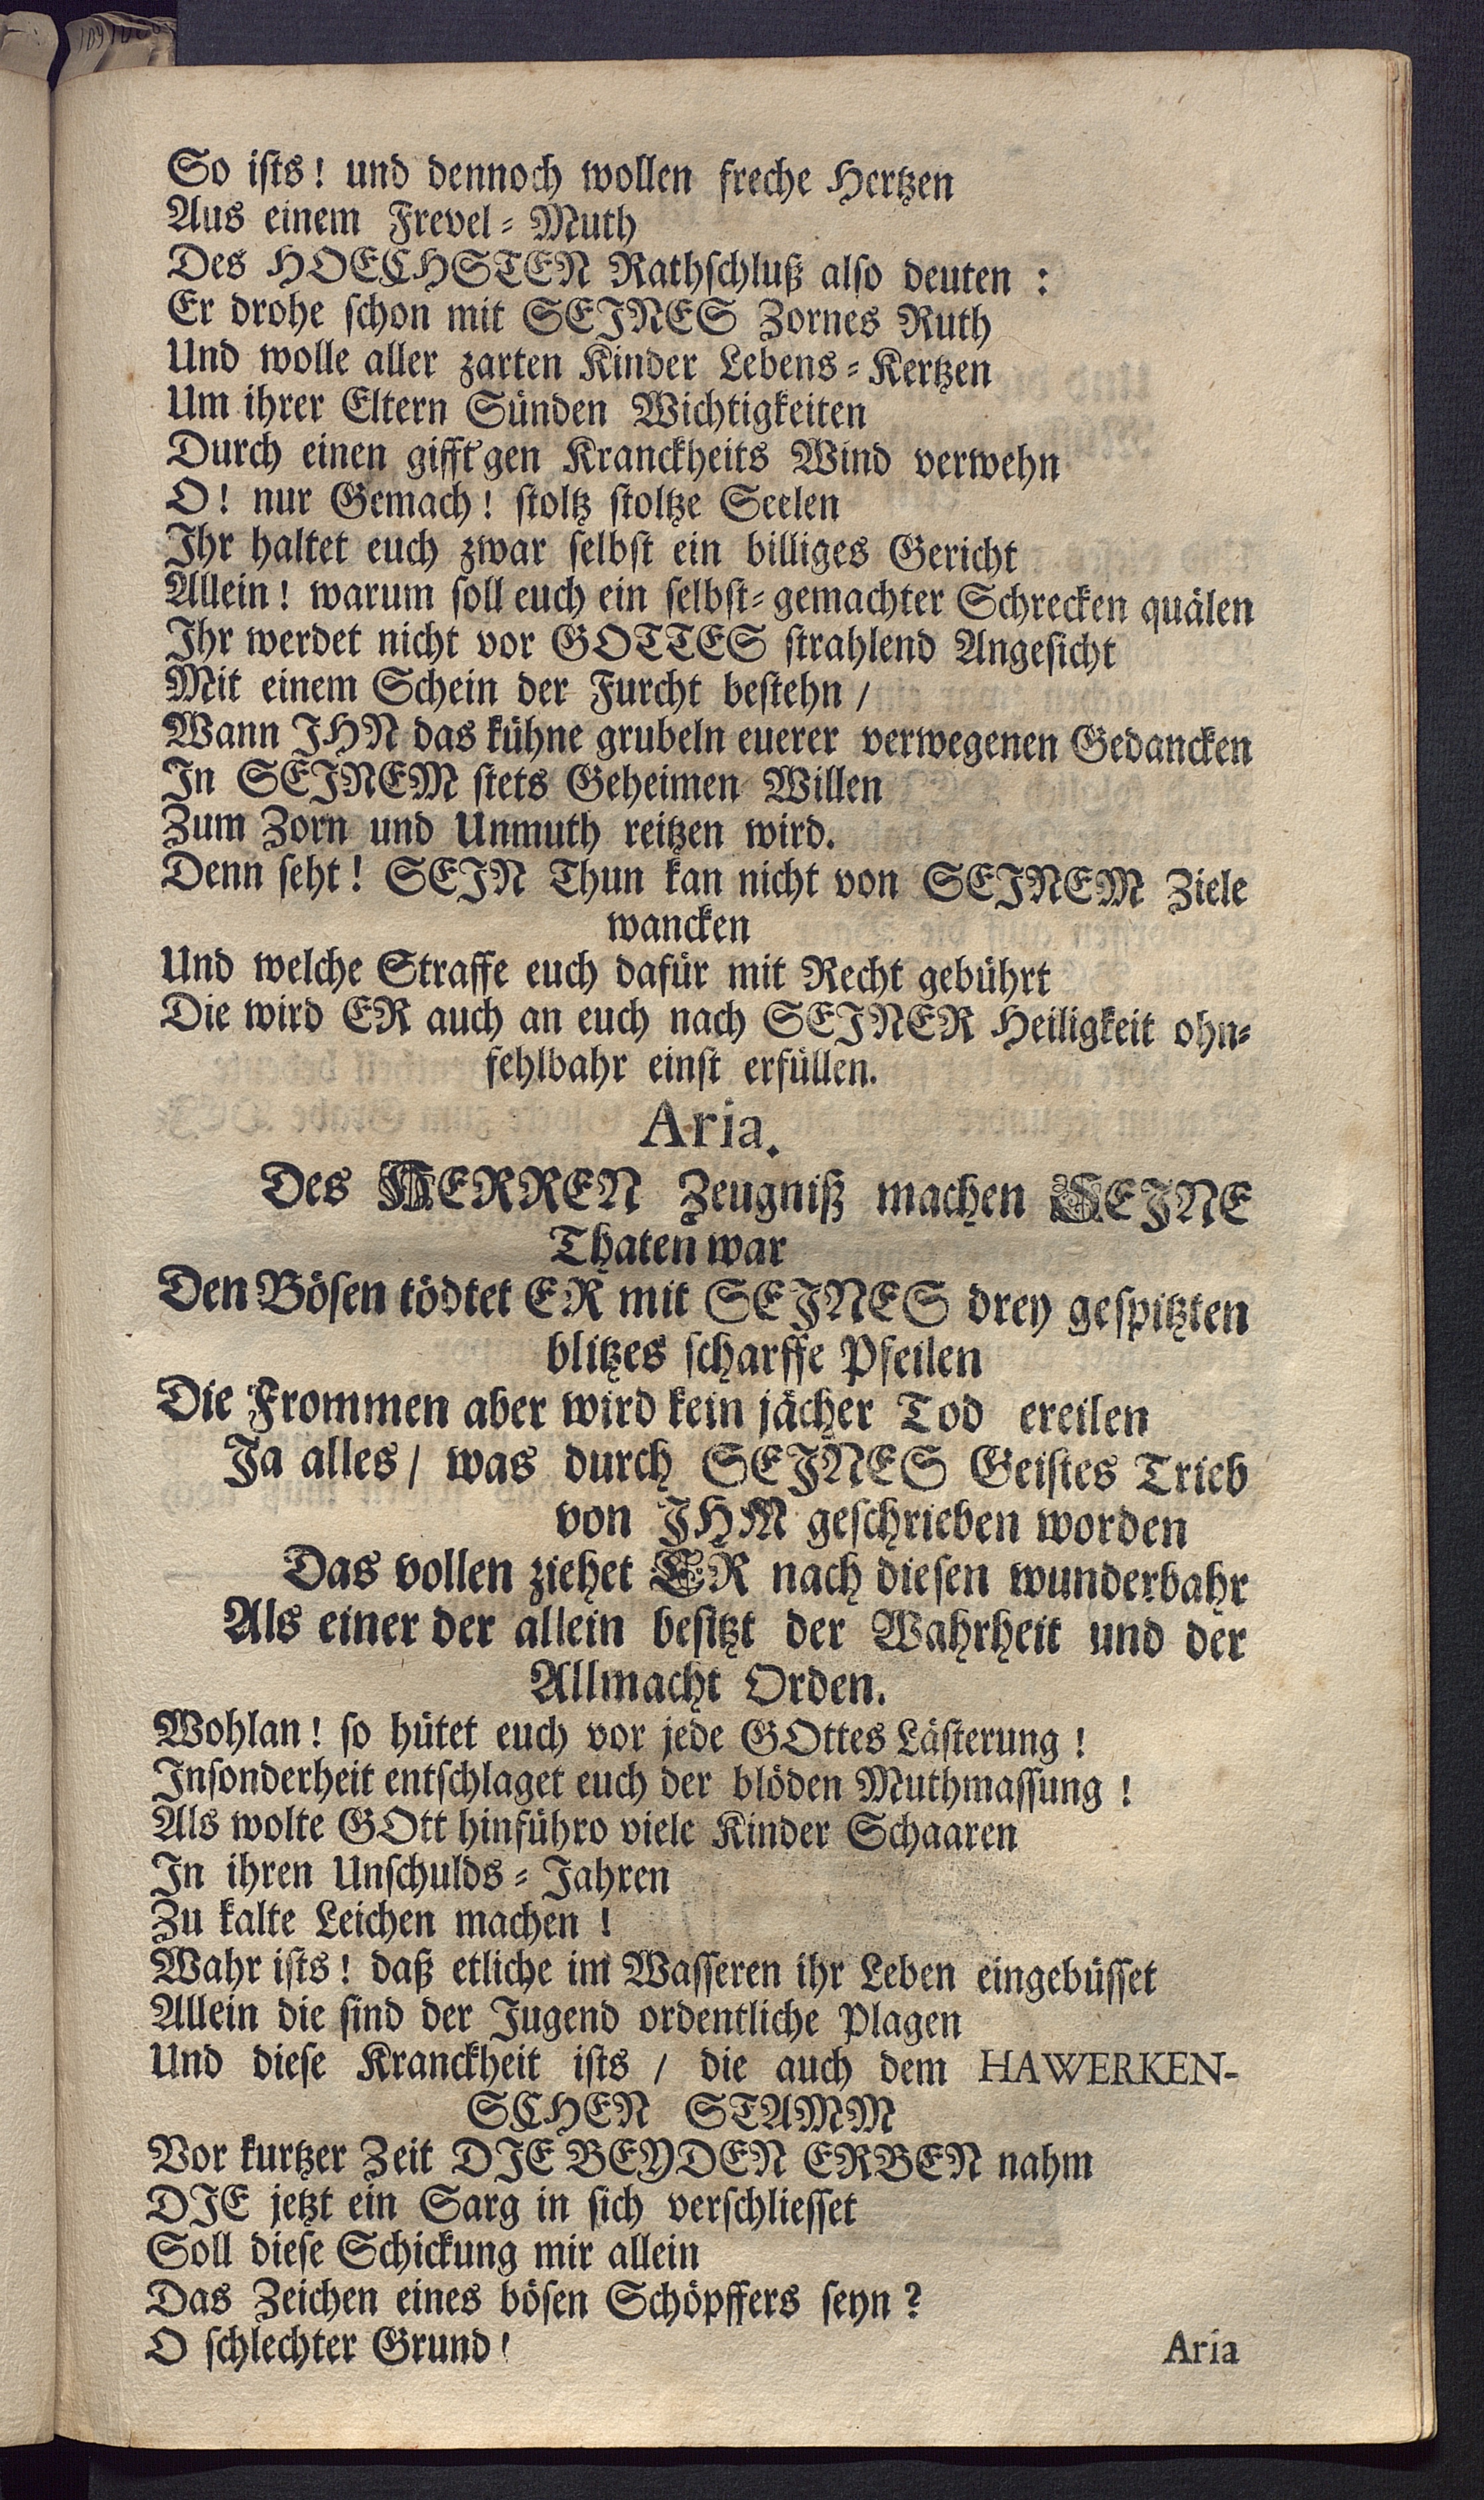 So iſts! und dennoch wollen freche Hertzen
Aus einem Frevel-Muth
Des HOECHSTEN Rathſchluß alſo deuten :
Er drohe ſchon mit SEINES Zornes Ruth
Und wolle aller zarten Kinder Lebens-Kertzen
Um ihrer Eltern Sünden Wichtigkeiten
Durch einen gifft'gen Kranckheits Wind verwehn
O! nur Gemach! ſtoltz ſtoltze Seelen
Ihr haltet euch zwar ſelbſt ein billiges Gericht
Allein! warum ſoll euch ein ſelbſt-gemachter Schrecken quälen
Ihr werdet nicht vor GOTTES ſtrahlend Angeſicht
Mit einem Schein der Furcht beſtehn /
Wann IHN das kühne grubeln euerer verwegenen Gedancken
In SEINEM ſtets Geheimen Willen
Zum Zorn und Unmuth reitzen wird.
Denn ſeht! SEIN Thun kan nicht von SEINEM Ziele
wancken
Und welche Straffe euch dafür mit Recht gebührt
Die wird ER auch an euch nach SEINER Heiligkeit ohn-
fehlbahr einſt erfüllen.
Aria.
Des HERREN Zeugniß machen SEINE
Thaten war
Den Böſen tödtet ER mit SEINES drey geſpitzten
blitzes ſcharffe Pfeilen
Die Frommen aber wird kein jächer Tod ereilen
Ja alles / was durch SEINES Geiſtes Trieb
von IHM geſchrieben worden
Das vollen ziehet ER nach dieſen wunderbahr
Als einer der allein beſitzt der Wahrheit und der
Allmacht Orden.
Wohlan! ſo hütet euch vor jede GOttes Läſterung !
Inſonderheit entſchlaget euch der blöden Muthmaſſung !
Als wolte GOtt hinführo viele Kinder Schaaren
In ihren Unſchulds-Jahren
Zu kalte Leichen machen !
Wahr iſts! daß etliche im Waſſeren ihr Leben eingebüſſet
Allein die ſind der Jugend ordentliche Plagen
Und dieſe Kranckheit iſts / die auch dem HAWERKEN-
SCHEN STAMM
Vor kurtzer Zeit DIE BEYDEN ERBEN nahm
DIE jetzt ein Sarg in ſich verſchlieſſet
Soll dieſe Schickung mir allein
Das Zeichen eines böſen Schöpffers ſeyn ?
O ſchlechter Grund!
Aria